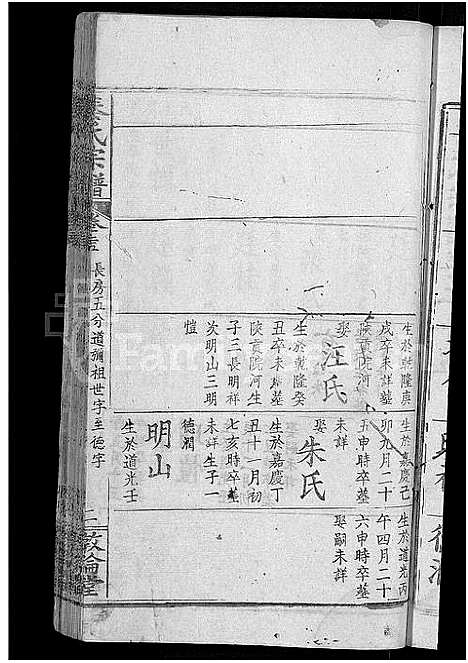 氏宗譜
長房五分道彌祖世字至德字
二
敦倫堂
生於乾隆庚
戌卒未詳墓
陝貢院河
娶
汪氏
生於乾隆癸
丑卒未詳墓
陝貢院河生
子三長明祥
次明山三明
愷
生於嘉慶己
卯九月二十
五申時卒墓
未詳
娶
朱氏
生於嘉慶丁
丑十一月初
七亥時卒墓
未詳生子一
德潤
明山
生於道光壬
生於道光丙
午四月二十
六申時卒墓
娶嗣未詳